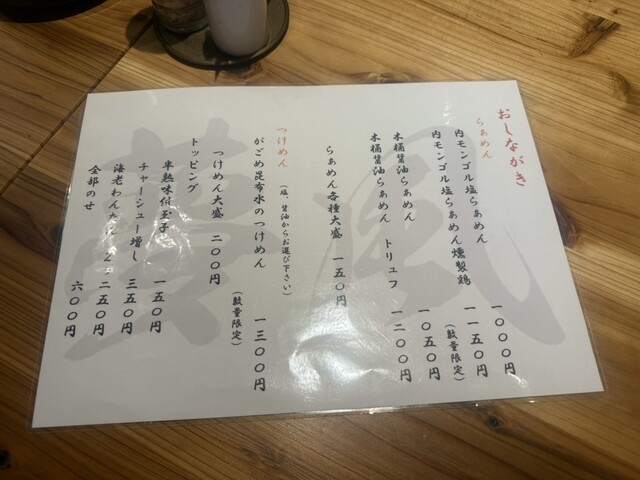 おしながき
らぁめん
内モンゴル塩らぁめん 一〇〇〇円
内モンゴル塩らぁめん燻製鶏 一一五〇円
(数量限定)
木桶醤油らぁめん 一〇五〇円
木桶醤油らぁめん トリュフ 一二〇〇円
らぁめん各種大盛 一五〇円
つけめん (塩、醤油からお選び下さい)
がごめ昆布水のつけめん 一三〇〇円
(数量限定)
つけめん大盛 二〇〇円
トッピング
半熟味付玉子 一五〇円
チャーシュー増し 三五〇円
海老わん 二五〇円
全部のせ 六〇〇円
風